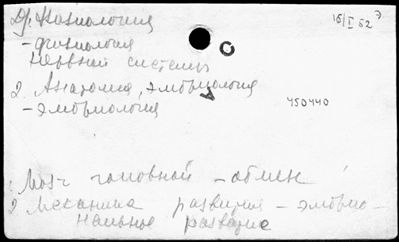 Физиология
15/I 52
- физиология
нервной системы
2. Анатомия, эмбриология
- эмбриология
450440
Мозг головной - обмен
2 Механика развития - эмбрио-
нальное развитие